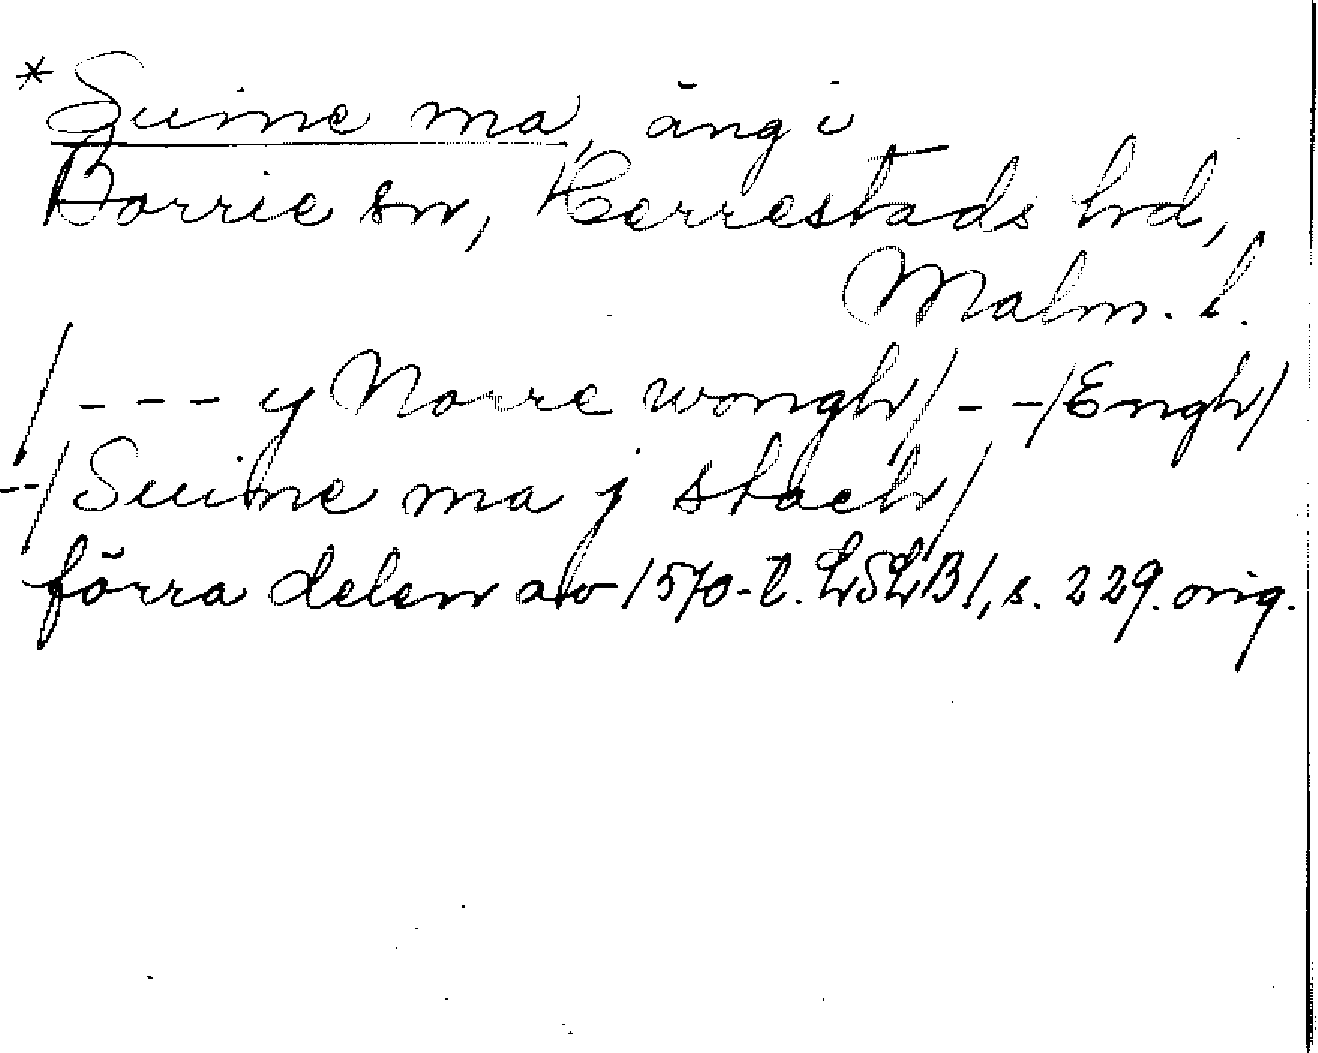 *Suine ma, äng i
Borrie sn, Herrestads hd,
Malm. l.
/--- y Norre wongh/--/Engh/
--/Suine ma j stach/
förra delen av 1570-t. LSLB1, s. 229. orig.